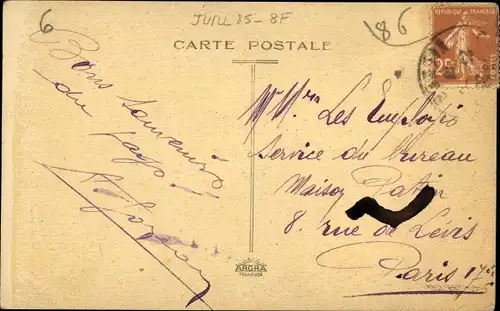 6
JUILL 85-8F
86
CARTE POSTALE
REPUBLIQUE FRANÇAISE
25c
Bons souvenirs
du pays!
Mrs Les Employés
Service du Bureau
Maison Patin
8. rue de Lévis
Paris 17e
ARGRA
TOULOUSE